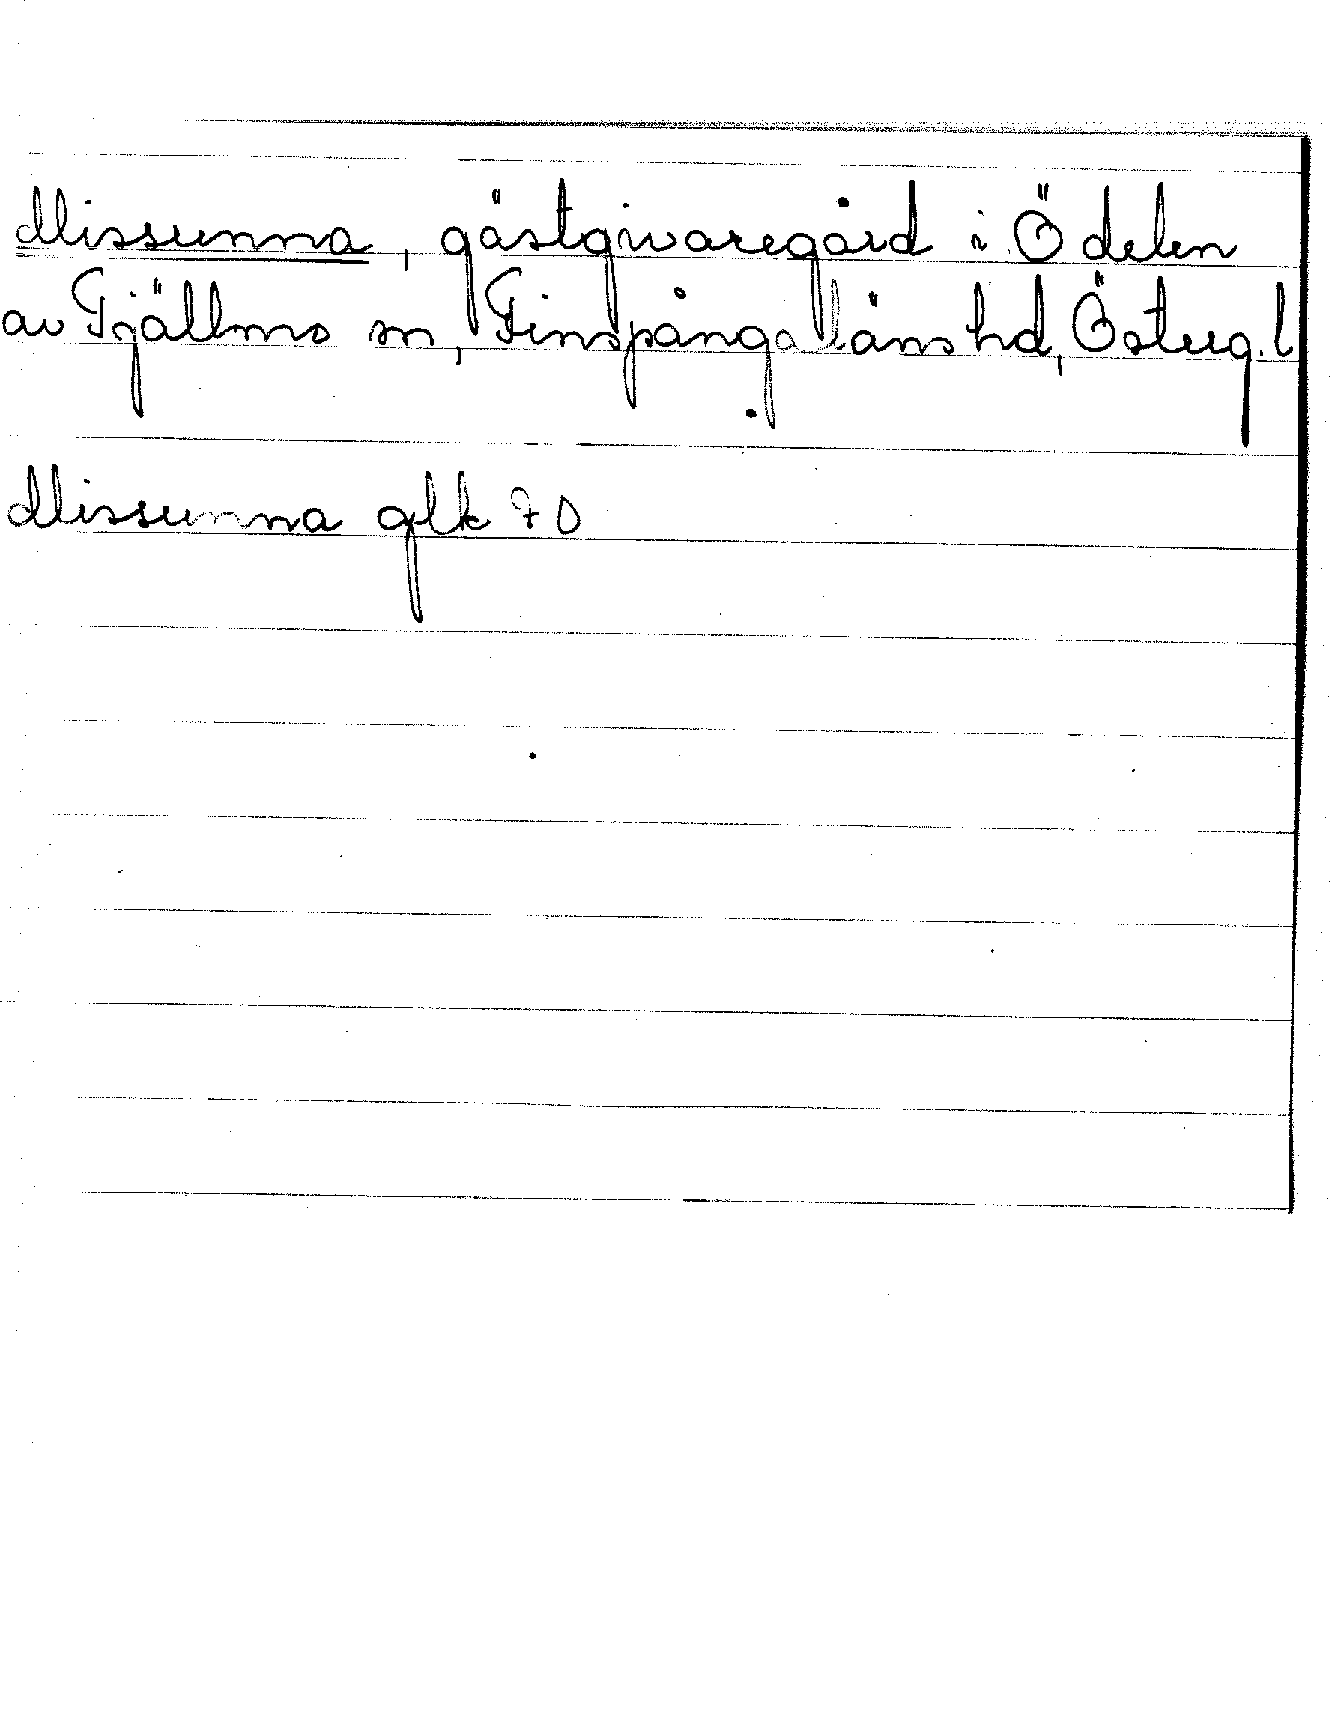 Missunna, gästgivaregård i Ö delen
av Tjällmo sn, Finspångalänshd, Österg. l
Missunna glk 70